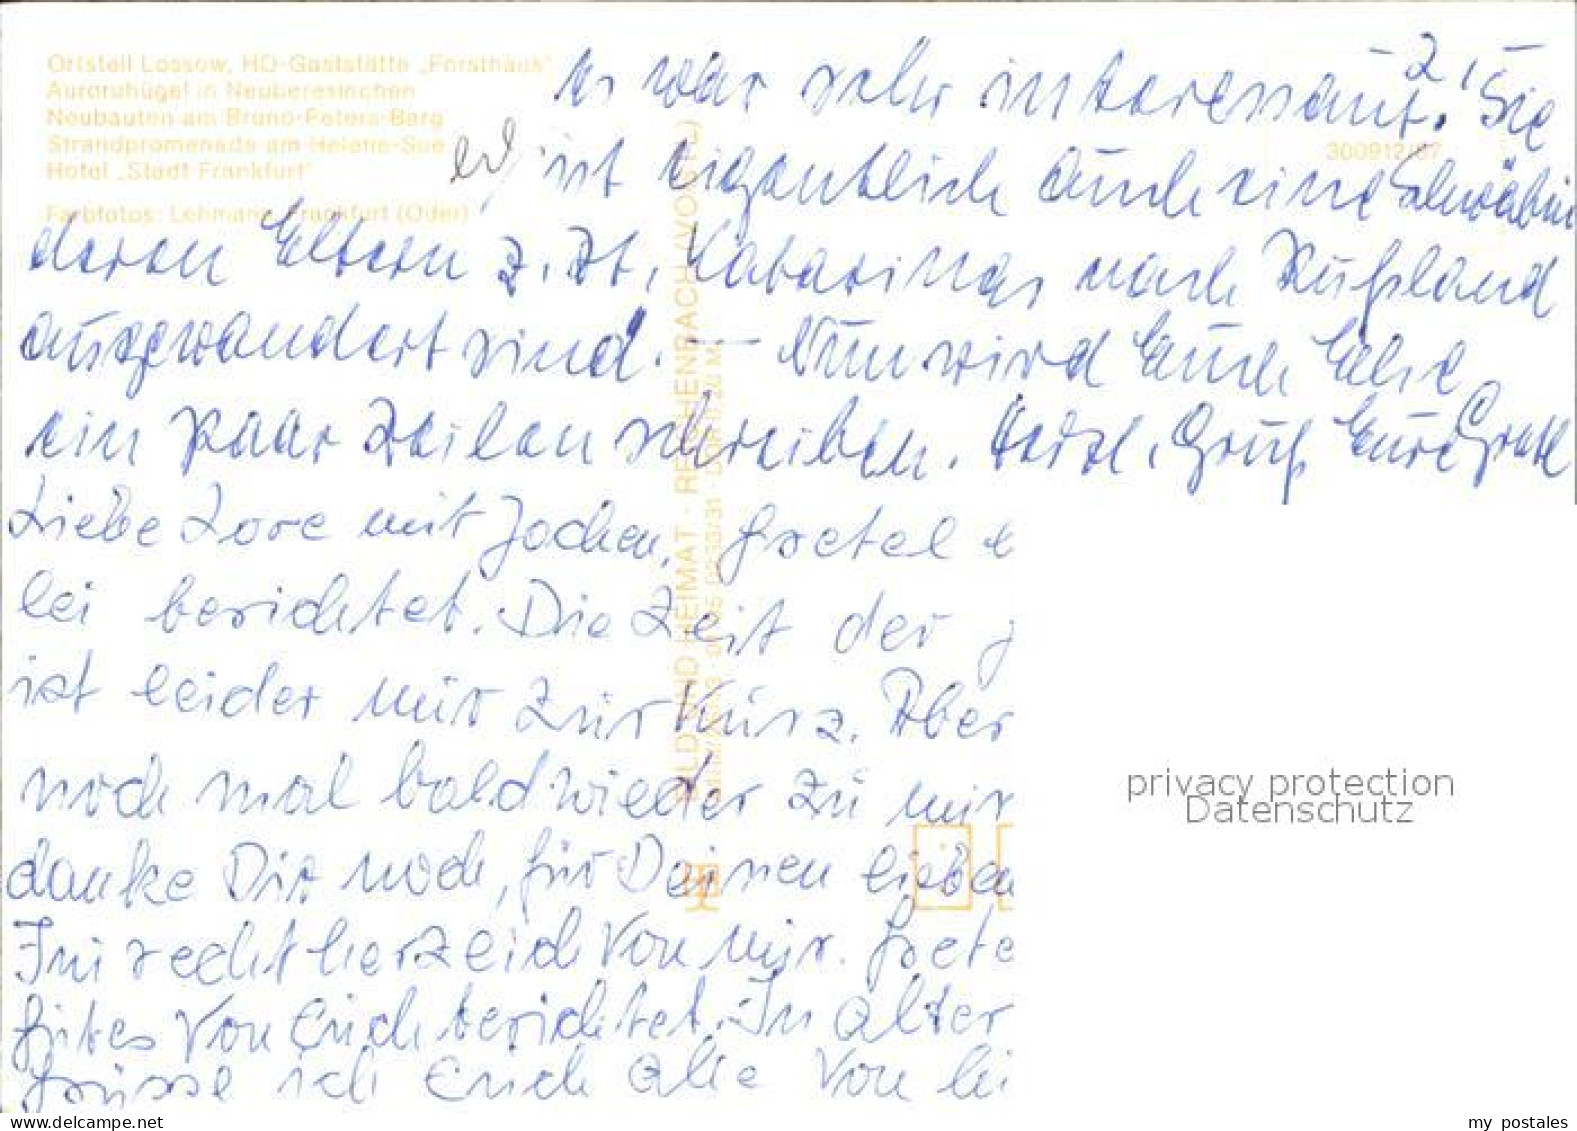 Ortsteil Lossow, HO-Gaststätte „Forsthaus"
Aurorahügel in Neuberesinchen
Neubauten am Bruno-Peters-Berg
Strandpromenade am Helene-See
Hotel „Stadt Frankfurt"
Farbfotos: Lehmann, Frankfurt (Oder)
300912/87
BILD UND HEIMAT · REICHENBACH (VOGTL)
- 2, -
Es war sehr interessant. Sie
ist eigentlich auch eine Schwäbin
deren Eltern z. Zt. Katarinas nach Rußland
ausgewandert sind. — Nun wird Euch Else
ein paar Zeilen schreiben. Herzl. Gruß Eure Gretl
Liebe Lore mit Jochen, Gretel
lei berichtet. Die Zeit der
ist leider mir zur Kurz. Aber
noch mal bald wieder zu mir
danke Dir noch, für Deinen lieben
Sei recht herzlich von mir. Grete
Gutes von Euch berichtet. In alter
Grüsse ich Euch alle von
privacy protection
Datenschutz
www.delcampe.net
my_postales